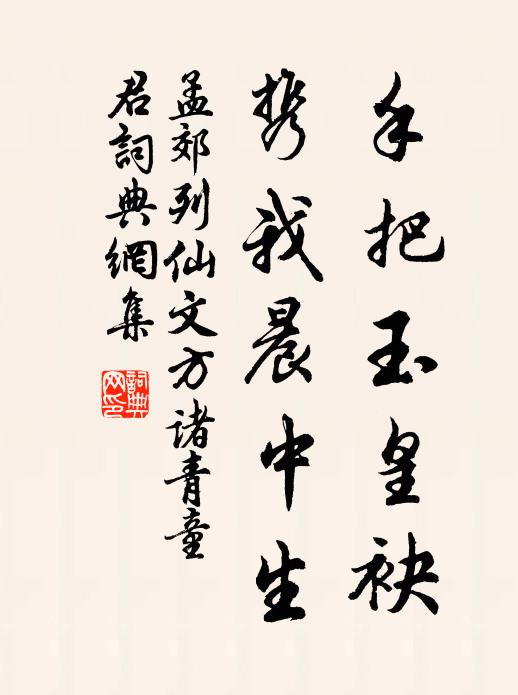 手把玉皇袂
携我晨中生
孟郊列仙文方诸青童
君詞典網集
詞典网印